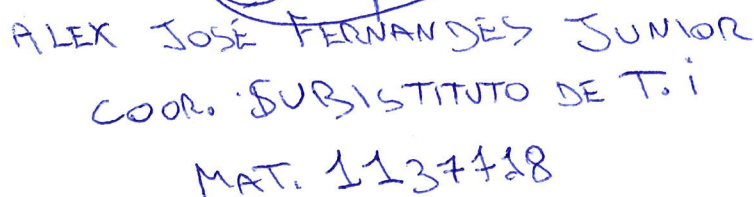 ALEX JOSÉ FERNANDES JUNIOR
COOR. SUBISTITUTO DE T.i
MAT. 1137728